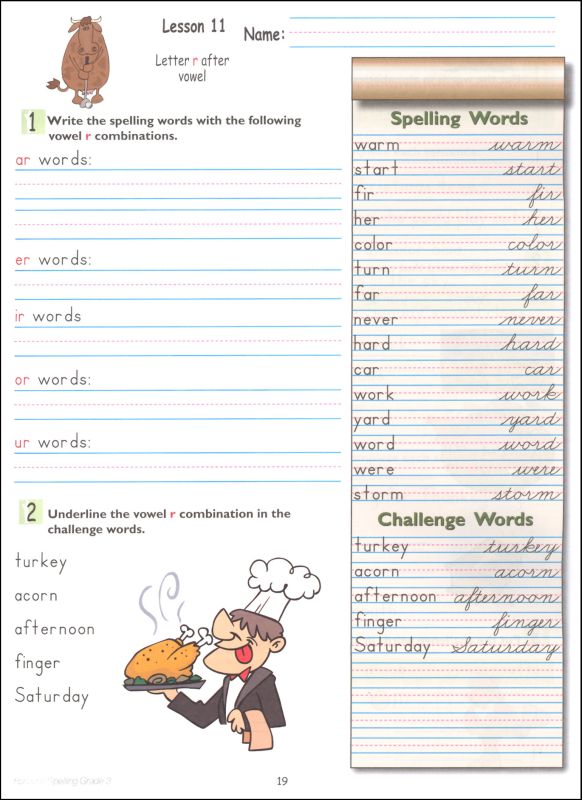 Lesson 11
Name:
Letter r after
vowel
1 Write the spelling words with the following
vowel r combinations.
ar words:
er words:
ir words
or words:
ur words:
2 Underline the vowel r combination in the
challenge words.
turkey
acorn
afternoon
finger
Saturday
Spelling Words
warm warm
start start
fir fir
her her
color color
turn turn
far far
never never
hard hard
car car
work work
yard yard
word word
were were
storm storm
Challenge Words
turkey turkey
acorn acorn
afternoon afternoon
finger finger
Saturday Saturday
Spelling Grade 3
19